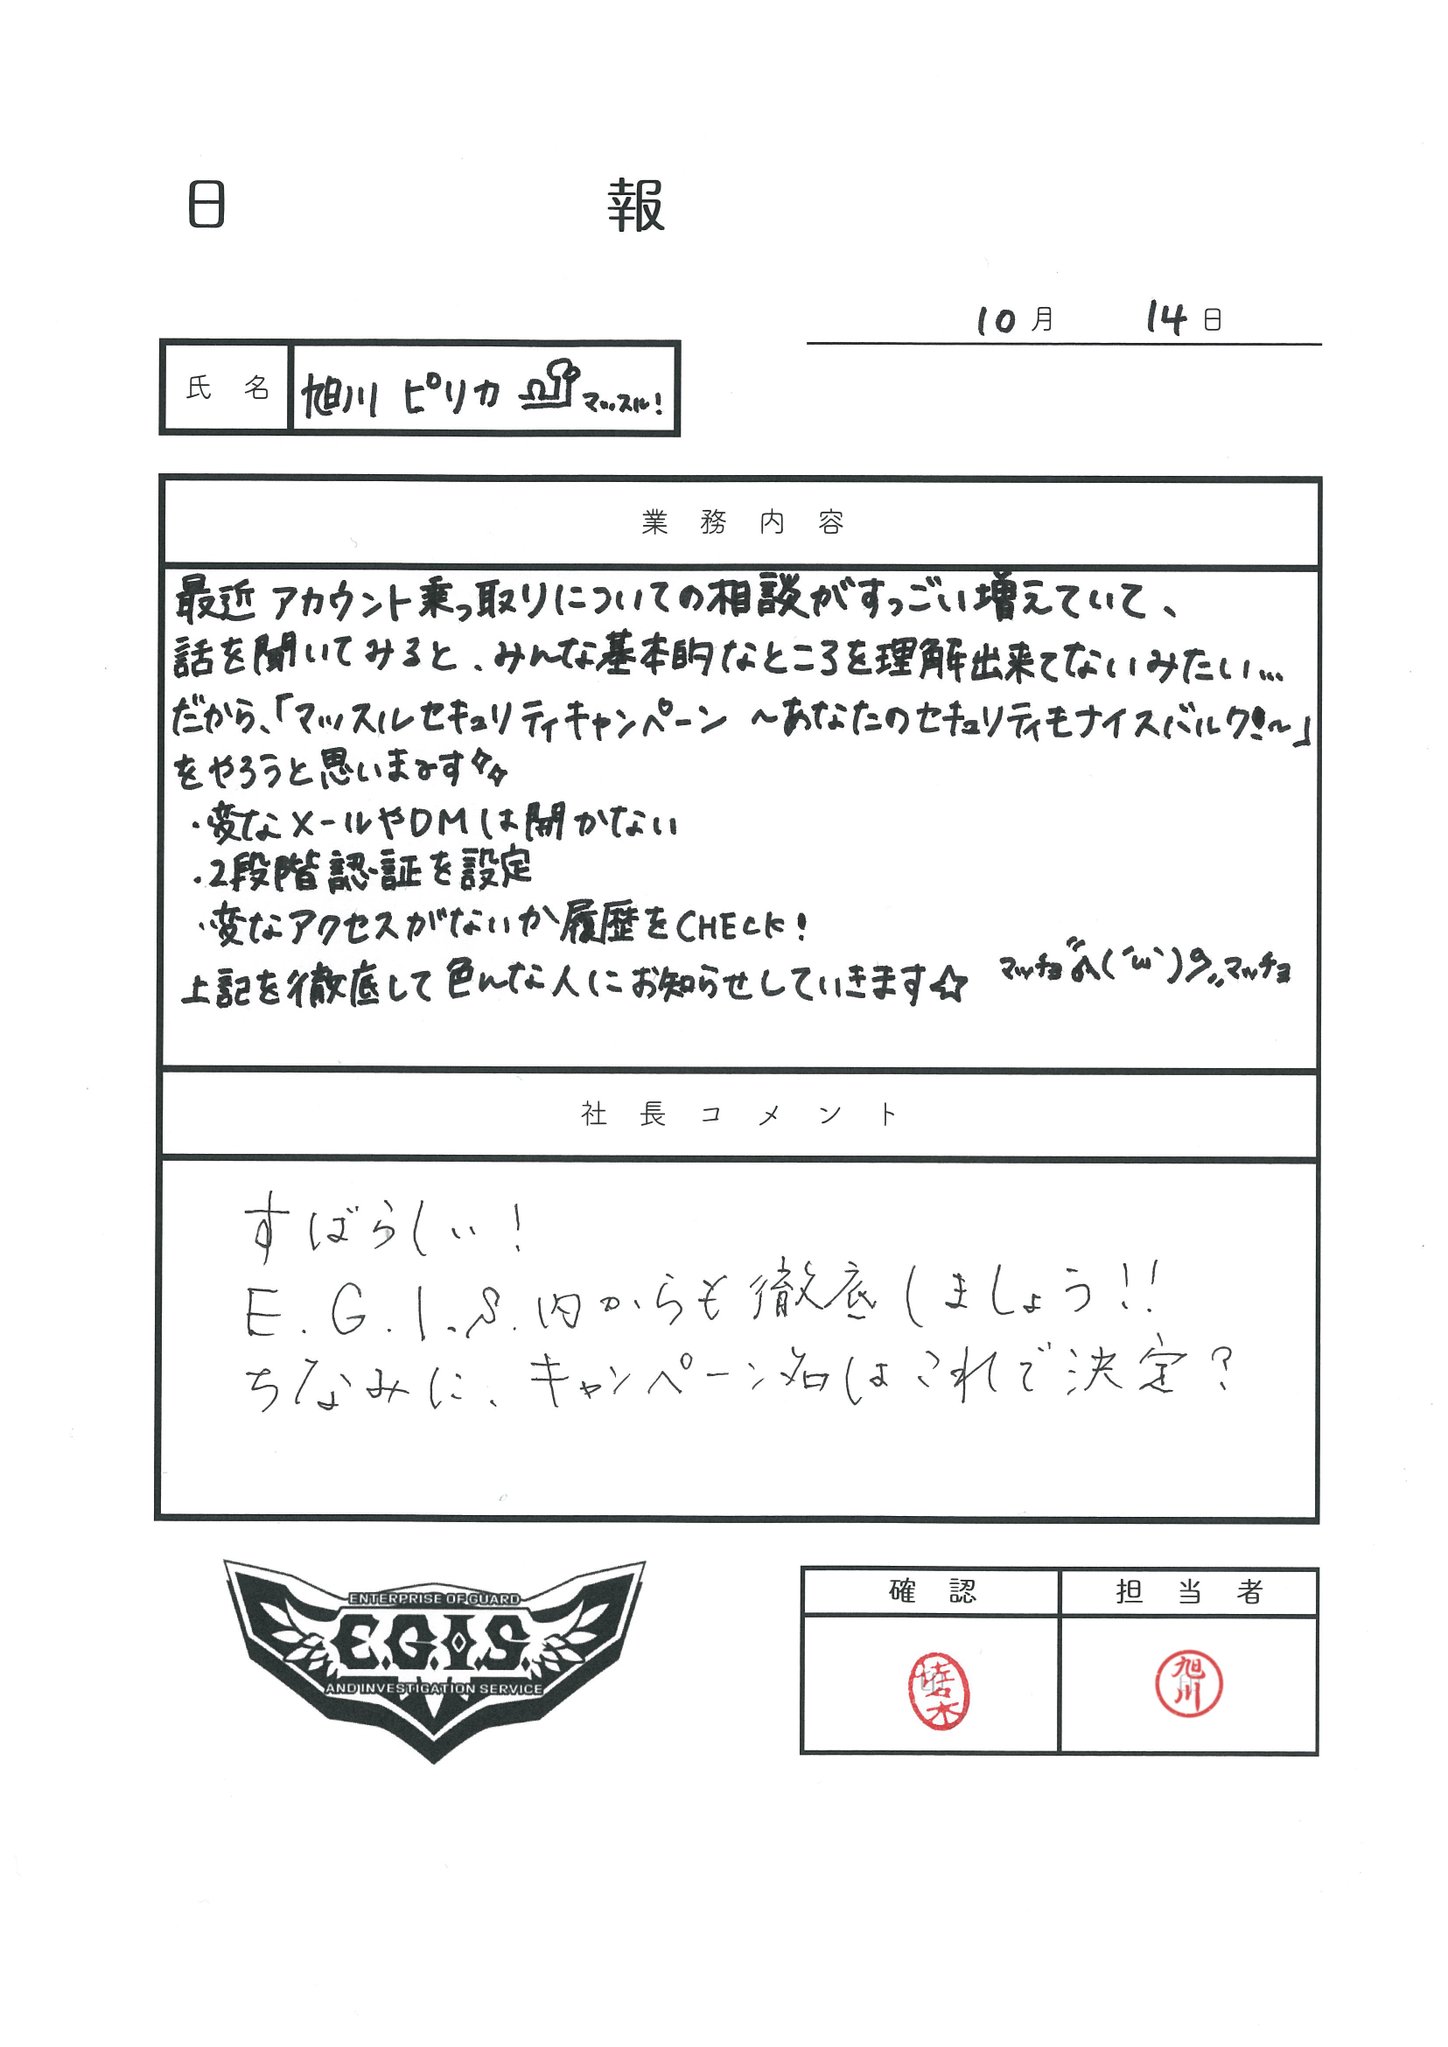 日報
10月 14日
氏名 旭川 ピリカ マッスル!
業務内容
最近 アカウント乗っ取りについての相談がすっごい増えていて、
話を聞いてみると、みんな基本的なところを理解出来てないみたい…
だから、「マッスルセキュリティキャンペーン ～あなたのセキュリティもナイスバルク!～」
をやろうと思いまます
・変なメールやDMは開かない
・2段階認証を設定
・変なアクセスがないか履歴をCHECK!
上記を徹底して色んな人にお知らせしていきます☆ マッチョ マッチョ
社長コメント
すばらしい!
E.G.I.S.内からも徹底しましょう!!
ちなみに、キャンペーン名はこれで決定?
ENTERPRISE OF GUARD
E.G.I.S.
AND INVESTIGATION SERVICE
確認 担当者
旭川